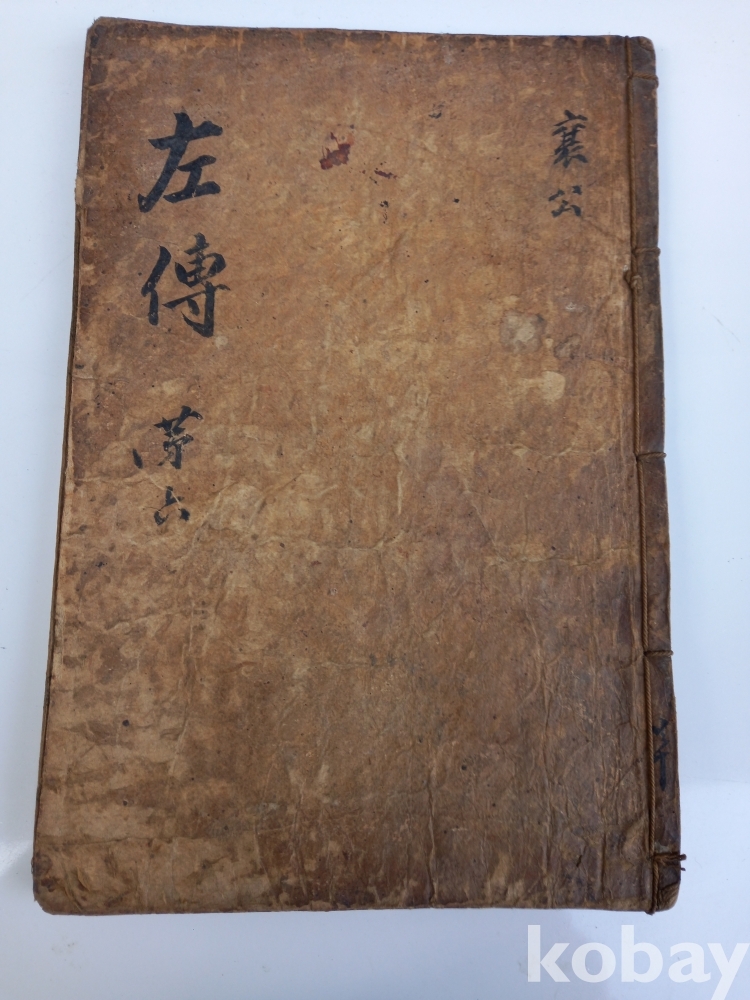 襄公
左傳 第六
kobay